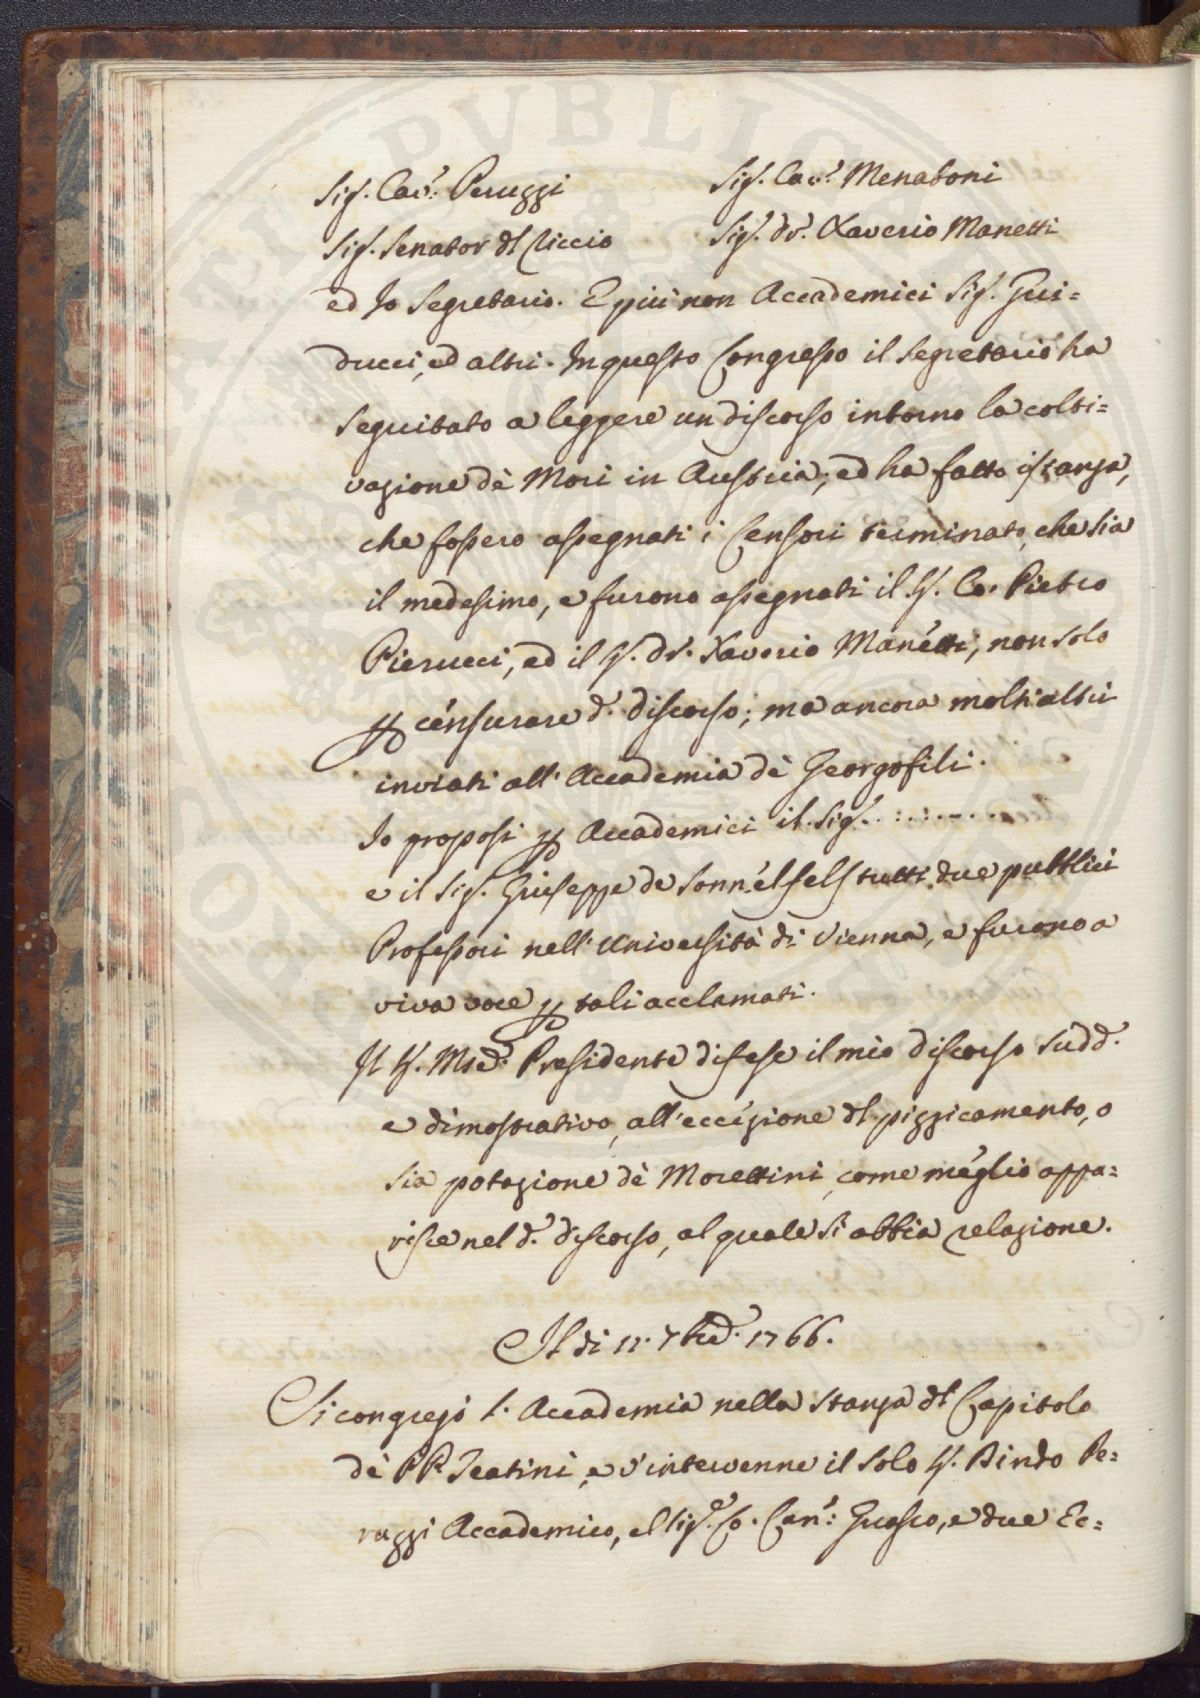 Sig. Cav.r Peruzzi Sig. Cav.r Menaboni
Sig. Senator dl Riccio Sig. Dr. Xaverio Manetti
ed Io Segretario. E più non Accademici Sig. Gui=
ducci, ed altri. In questo Congresso il Segretario ha
seguitato a leggere un discorso intorno la colti=
vazione dè Mori in Austria; ed ha fatto istanza,
che fossero assegnati i Censori terminato, che sia
il medesimo, e furono assegnati il S. Co. Pietro
Pierucci, ed il S. Dr. Xaverio Manetti, non solo
p censurare d. discorso; ma ancora molti altri
inviati all' Accademia dè Georgofili.
Io proposi p Accademici il Sig. . . . . . . . .
e il Sig. Giuseppe de Sonnelfels tutti due pubblici
Professori nell' Università di Vienna, e furono a
viva voce p tali acclamati.
Il S. Mse. Presidente difese il mio discorso sudd.
e dimostrativo, all' eccezione dl pizzicamento, o
sia potazione dè Morettini, come meglio appa=
risce nel d. discorso, al quale si abbia relazione.
Il di 11. 7bre. 1766.
Si congregò l'. Accademia nella stanza dl Capitolo
dè PP. Teatini, e v'intervenne il solo S. Bindo Pe=
ruzzi Accademico, el Sig. Co. Can.: Guasco, e due Ec=